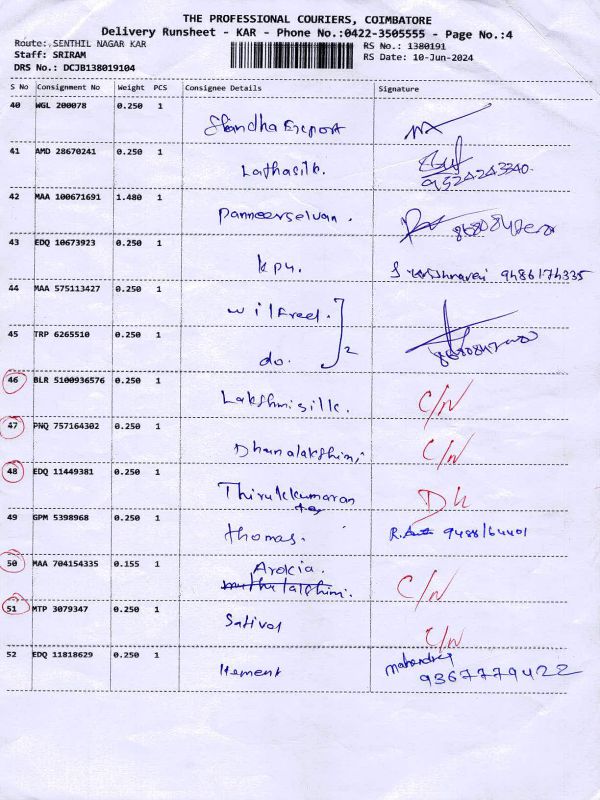 THE PROFESSIONAL COURIERS, COIMBATORE
Delivery Runsheet - KAR - Phone No.:0422-3505555 - Page No.:4
Route: SENTHIL NAGAR KAR
RS No.: 1380191
Staff: SRIRAM
RS Date: 10-Jun-2024
DRS No.: DCJB138019104
S No Consignment No Weight PCS Consignee Details Signature
40 WGL 200078 0.250 1
Skandha Export
41 AMD 28670241 0.250 1
Lathasilk.
42 MAA 100671691 1.480 1
Panneerselvan.
43 EDQ 10673923 0.250 1
kpn. 9486174335
44 MAA 575113427 0.250 1
wilfreel.
45 TRP 6265510 0.250 1
do. 2
46 BLR 5100936576 0.250 1
Lakshmisilk. C/N
47 PNQ 757164302 0.250 1
Dhanalakshimi C/N
48 EDQ 11449381 0.250 1
Thirukkumaran DL
tex
49 GPM 5398968 0.250 1
thomas. 9488164401
50 MAA 704154335 0.155 1
Arokia.
muthulakshimi. C/N
51 MTP 3079347 0.250 1
C/N
52 EDQ 11818629 0.250 1
Hement Mahendra
9367779422